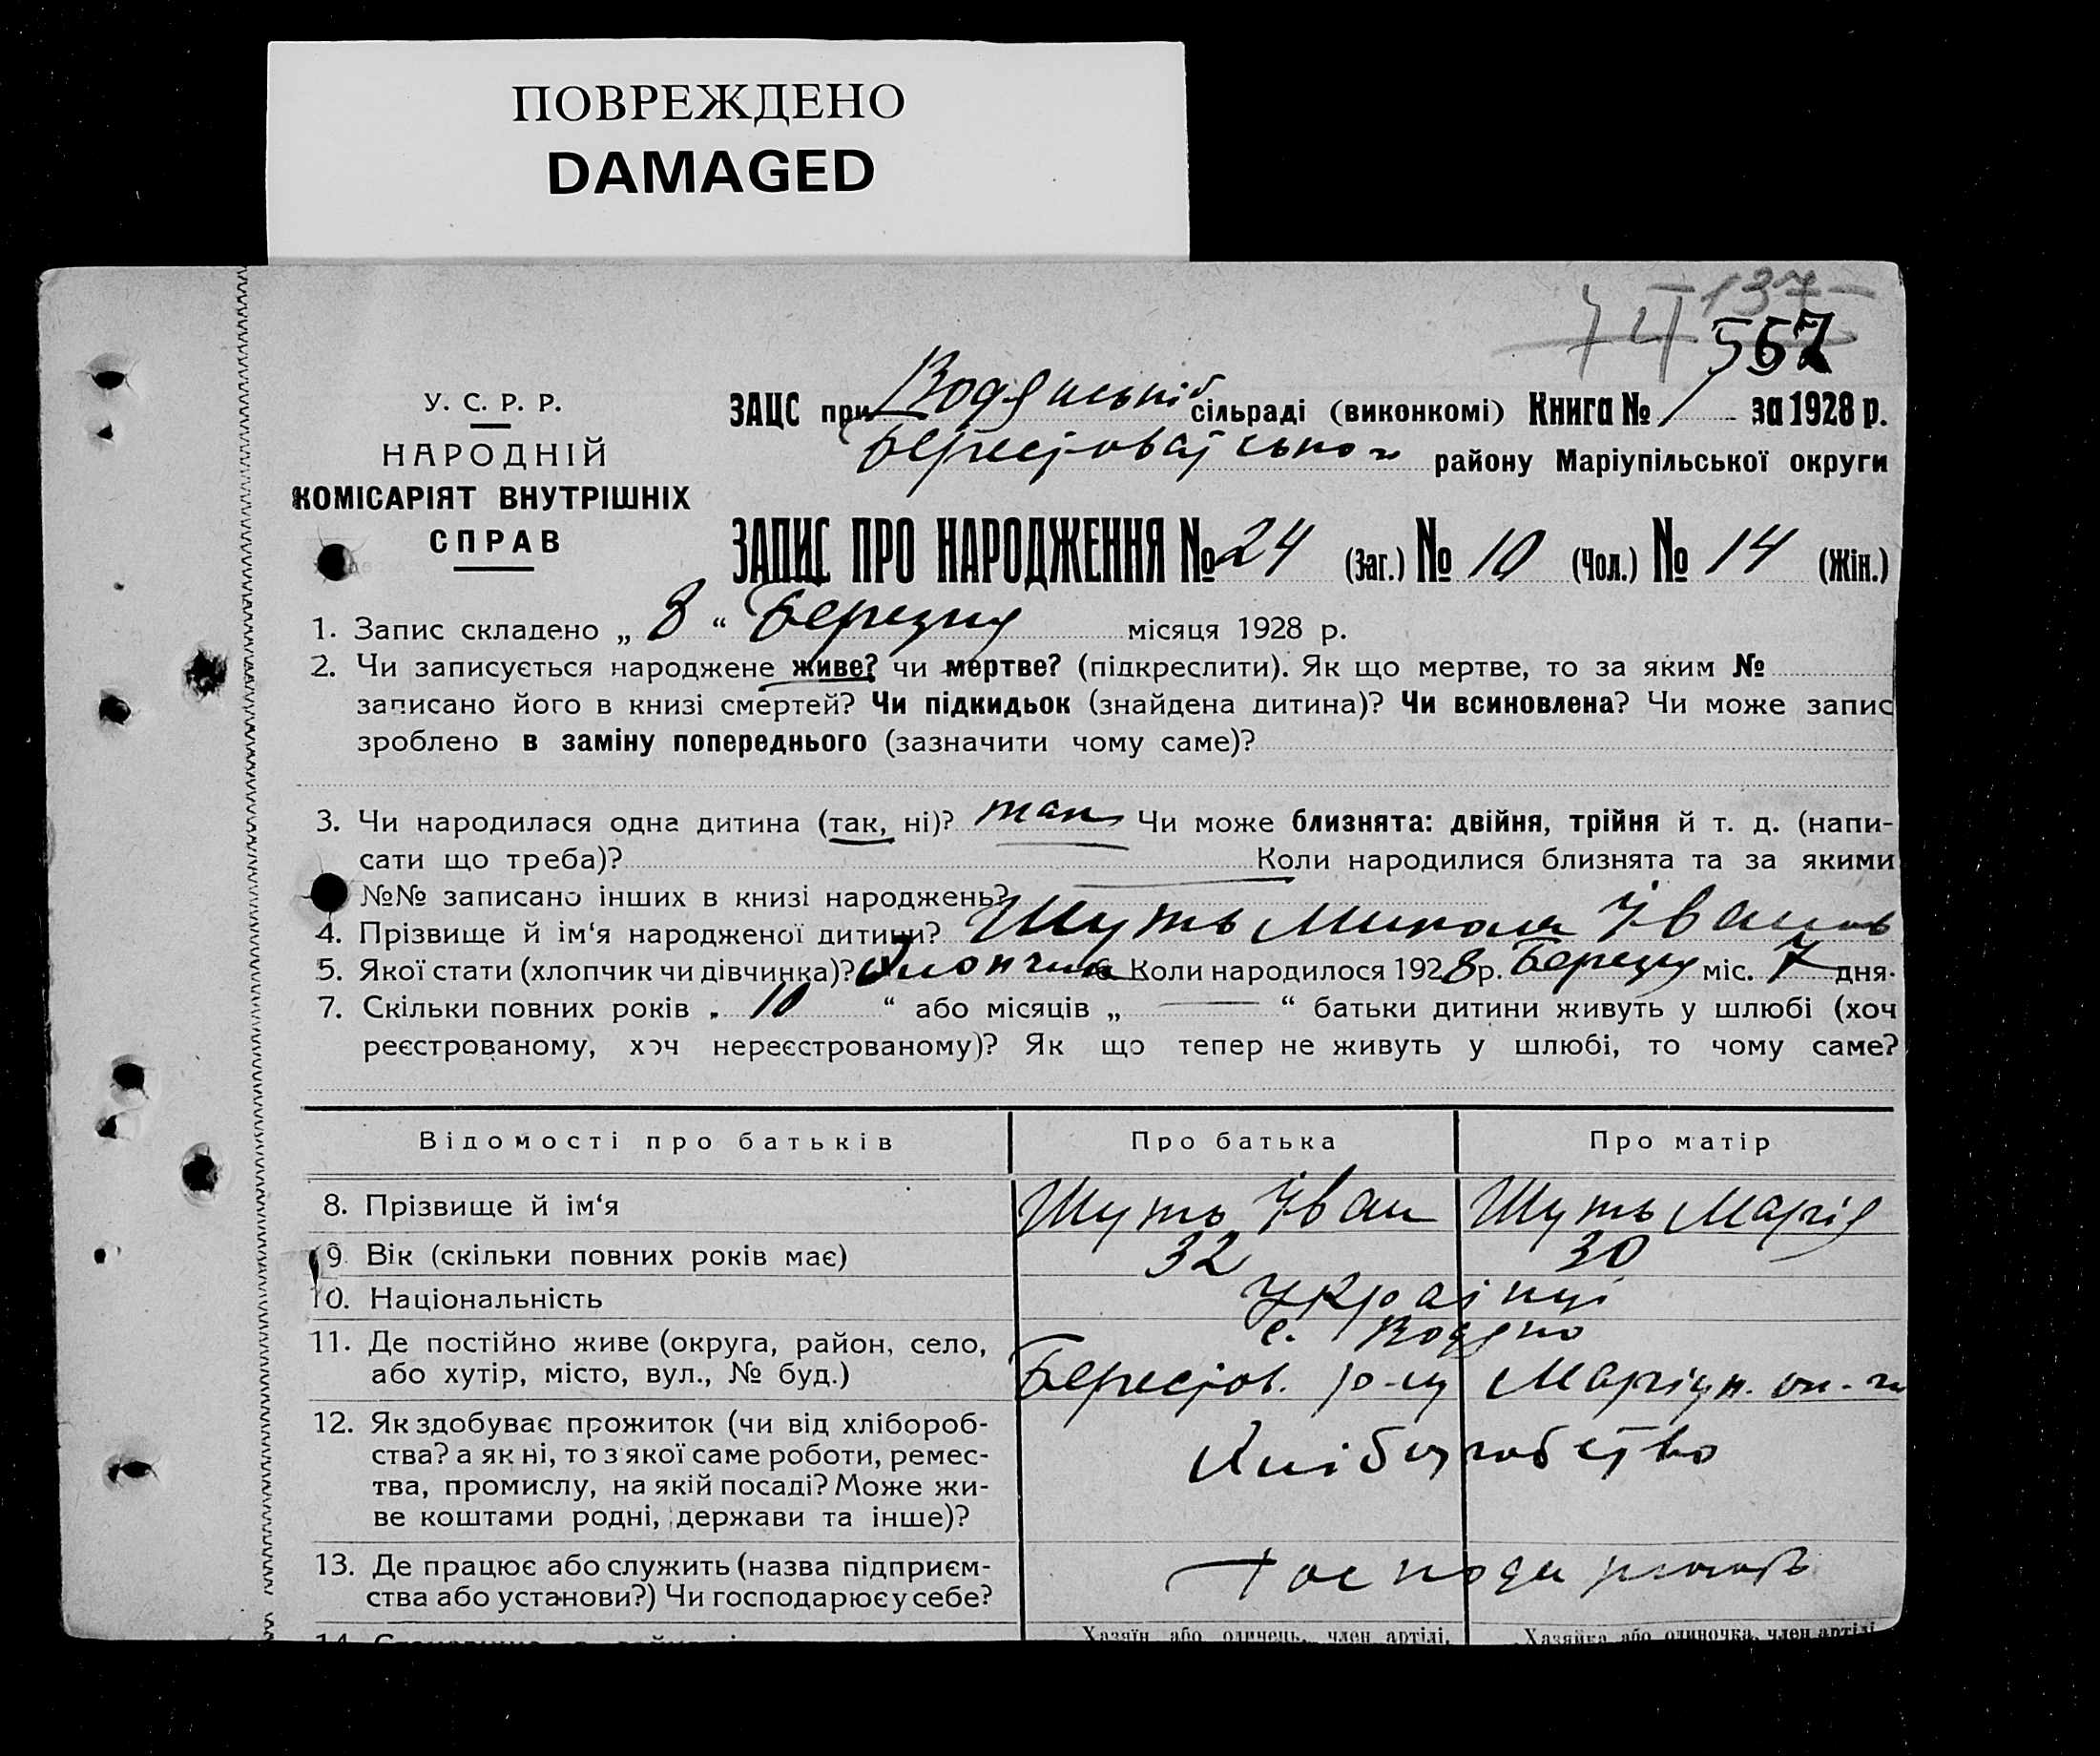 ПОВРЕЖДЕНО
DAMAGED
137
567
У. С. Р. Р.
НАРОДНІЙ
КОМІСАРІЯТ ВНУТРІШНІХ
СПРАВ
ЗАЦС при Водянській сільраді (виконкомі) Книга № 1 за 1928 р.
Берестоватського району Маріупільської округи
ЗАПИС ПРО НАРОДЖЕННЯ № 24 (Заг.) № 10 (Чол.) № 14 (Жін.)
1. Запис складено „ 8 “ Березня місяця 1928 р.
2. Чи записується народжене живе? чи мертве? (підкреслити). Як що мертве, то за яким №
записано його в книзі смертей? Чи підкидьок (знайдена дитина)? Чи всиновлена? Чи може запис
зроблено в заміну попереднього (зазначити чому саме)?
3. Чи народилася одна дитина (так, ні)? так Чи може близнята: двійня, трійня й т. д. (напи-
сати що треба)? Коли народилися близнята та за якими
№№ записано інших в книзі народжень?
4. Прізвище й ім‘я народженої дитини? Шуть Микола Іванов
5. Якої стати (хлопчик чи дівчинка)? Хлопчик 6. Коли народилося 1928 р. Березня міс. 7 дня.
7. Скільки повних років „ 10 “ або місяців „ — “ батьки дитини живуть у шлюбі (хоч
реєстрованому, хоч нереєстрованому)? Як що тепер не живуть у шлюбі, то чому саме?
Відомості про батьків Про батька Про матір
8. Прізвище й ім‘я Шуть Іван Шуть Марія
9. Вік (скільки повних років має) 32 30
10. Національність Українці
11. Де постійно живе (округа, район, село, с. Водяно
або хутір, місто, вул., № буд.) Берестов. р-ну Маріуп. ок-ги
12. Як здобуває прожиток (чи від хлібороб-
ства? а як ні, то з якої саме роботи, ремес- Хліборобство
тва, промислу, на якій посаді? Може жи-
ве коштами родні, держави та інше)?
13. Де працює або служить (назва підприєм-
ства або установи?) Чи господарює у себе?
Хазяїн або одинець, член артілі, Хазяйка або одиночка, член артілі